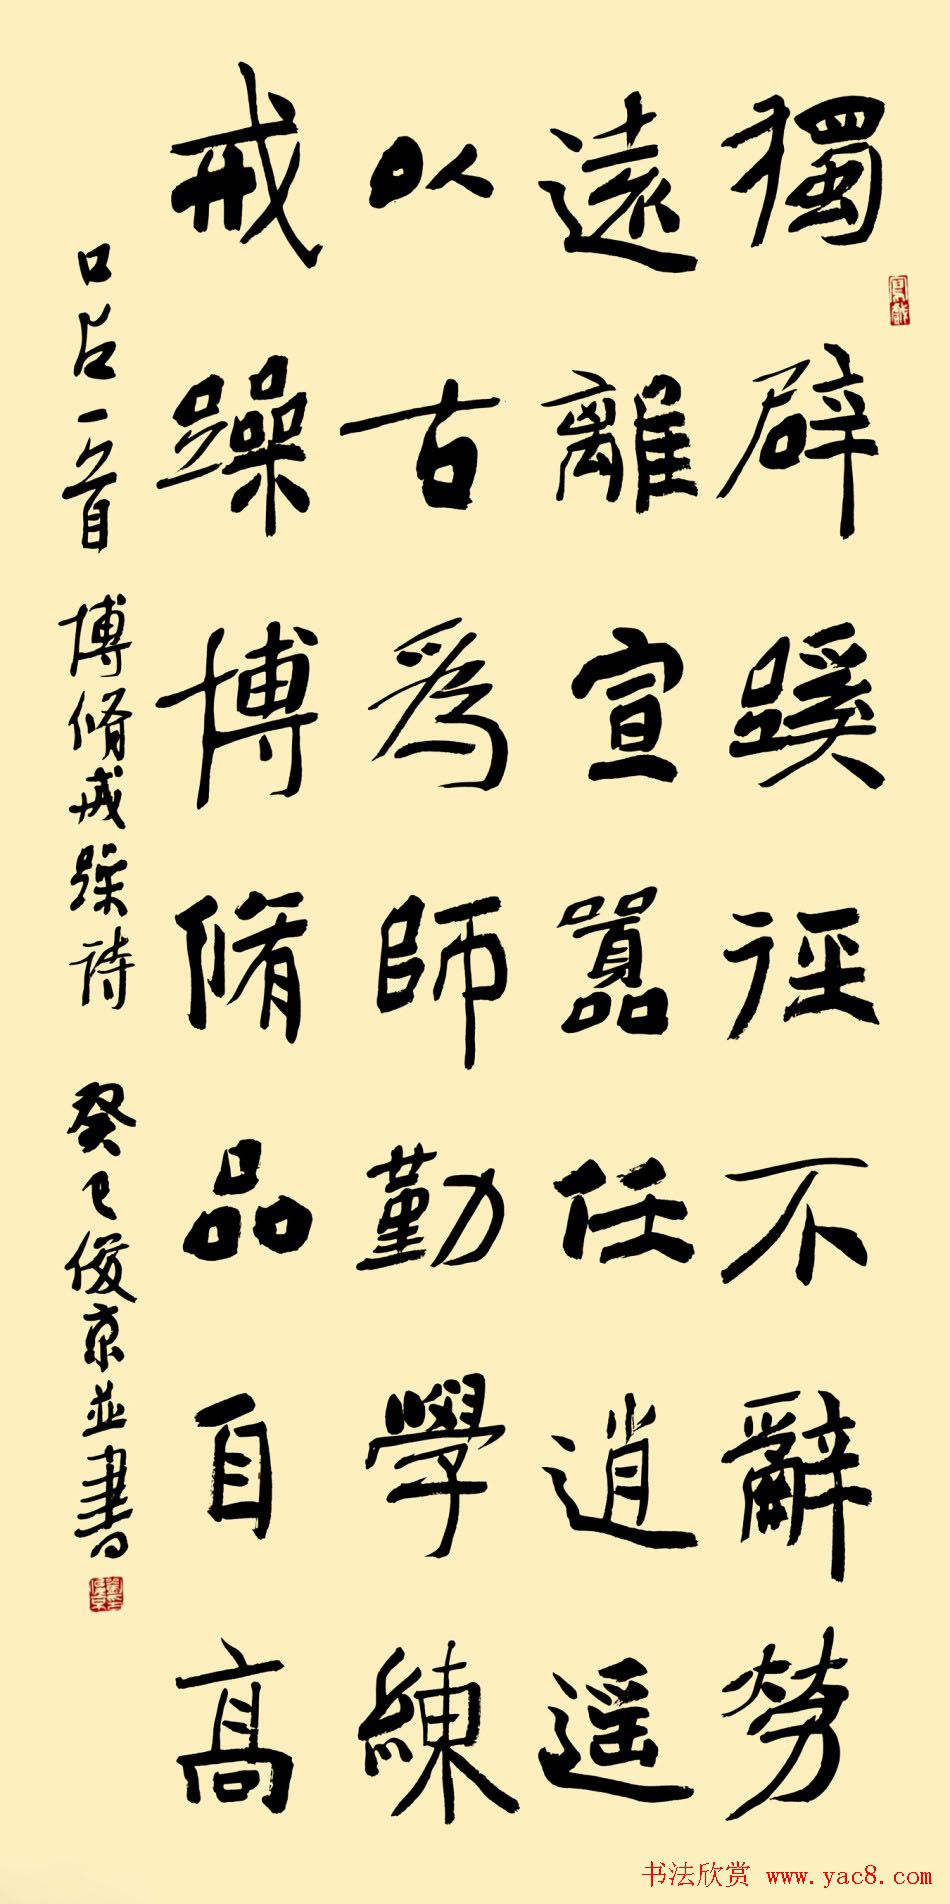 獨辟蹊徑不辭勞
遠離宣囂任逍遥
以古為師勤學練
戒躁博脩品自高
口占一首 博脩戒躁詩 癸巳俊京並書
书法欣赏 www.yac8.com